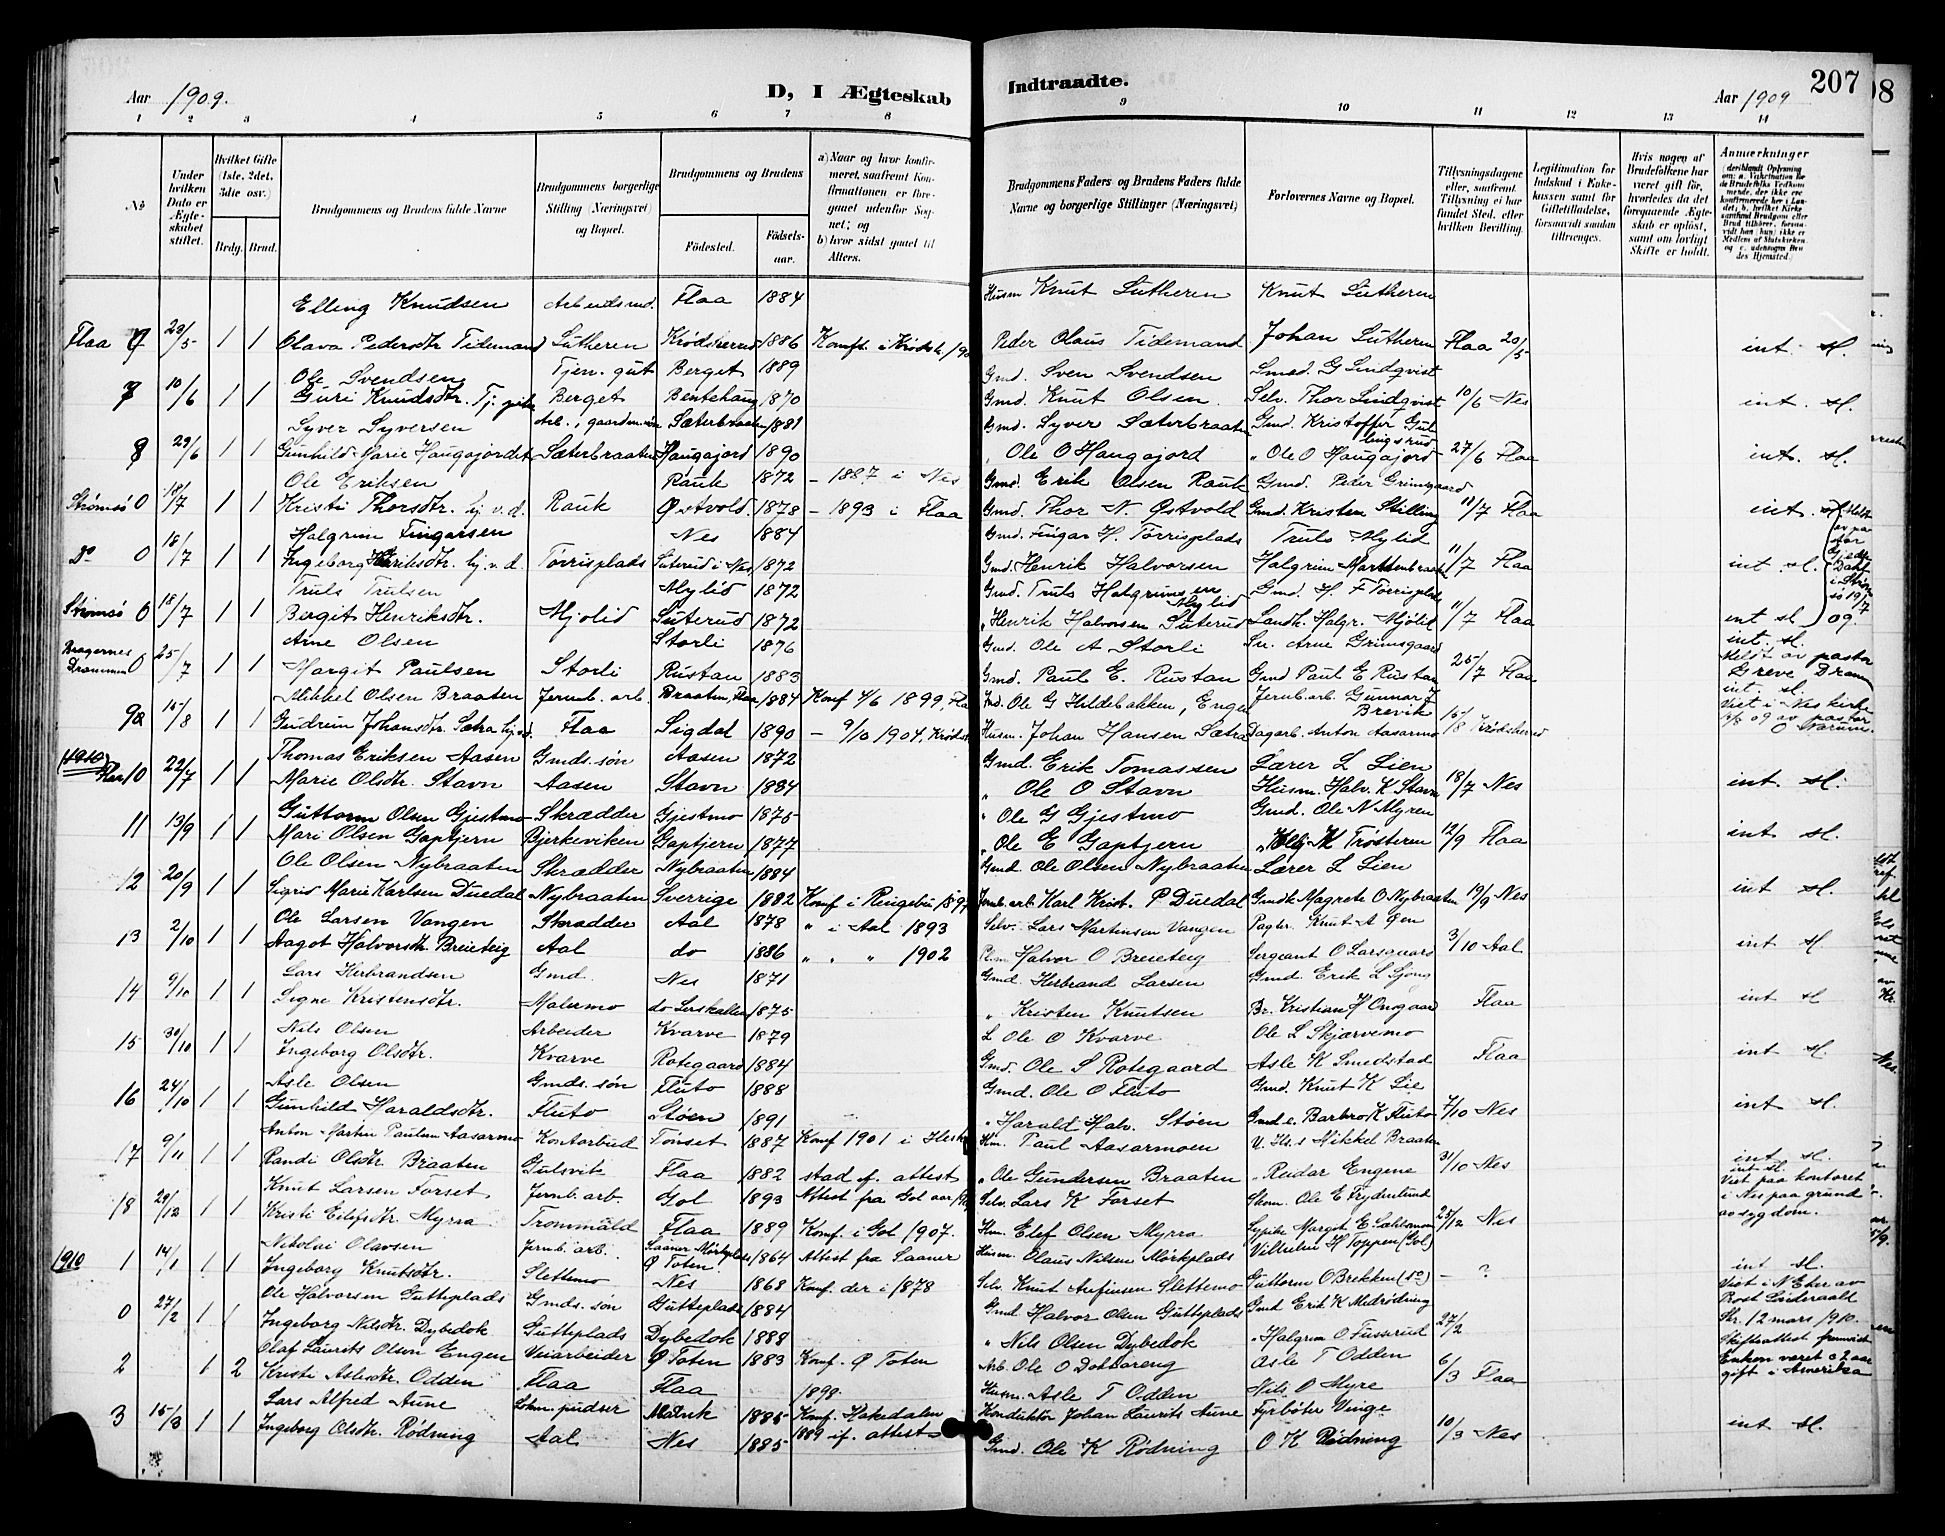 207
Aar 1909.
D, I Ægteskab
Indtraadte.
Aar 1909
1 2 3 4 5 6 7 8 9 10 11 12 13 14
No
Under hvilken Dato er Ægteskabet stiftet.
Hvilket Gifte (1ste, 2det, 3die osv.)
Brdg. Brud.
Brudgommens og Brudens fulde Navne
Brudgommens borgerlige Stilling (Næringsvei) og Bopæl.
Brudgommens og Brudens
Fødested. Fødselsaar.
a) Naar og hvor konfirmeret, saafremt Konfirmationen er foregaaet udenfor Sognet; og b) hvor sidst gaaet til Alters.
Brudgommens Faders og Brudens Faders fulde Navne og borgerlige Stillinger (Næringsvei)
Forlovernes Navne og Bopæl.
Tillysningsdagene eller, saafremt Tillysning ei har fundet Sted, efter hvilken Bevilling.
Legitimation for Indskud i Enkekassen samt for Giftetilladelse, forsaavidt saadan tiltrænges.
Hvis nogen af Brudefolkene har været gift før, hvorledes da det foregaaende Ægteskab er opløst, samt om lovligt Skifte er holdt.
Anmærkninger
Elling Knudsen Arbeidsmd. Flaa 1884 Husm Knut Sutheren Knut Sutheren
Flaa 23/5 1 1 Olava Pedersdtr Tidemand Sutheren Krødsherred 1886 Peder Olaus Tidemand Johan Sutheren Flaa 20/5 int. sl.
Ole Svendsen Tjen. gut Berget 1889 Gmd. Sven Svendsen Smed. G Lindqvist
7 10/6 1 1 Guri Knudsdtr. Berget Bentehaug 1870 Gmd. Knut Olsen Selv. Thor Lindqvist 10/6 Nes int. sl.
Syver Syversen Sæterbraaten 1881 Gmd. Syver Sæterbraaten Gmd. Kristoffer
8 29/6 1 1 Gunhild Marie Haugajordet Sæterbraaten Haugajord 1890 Ole O Haugajord " Ole O Haugajord 27/6 Flaa int. sl.
Ole Eriksen Rauk 1872 – 1887 i Nes Gmd. Erik Olsen Rauk Gmd. Peder Grimsgaard
Strømsø 0 18/7 1 1 Kristi Thorsdtr. hj. v. d. Rauk Østvold 1878 – 1893 i Flaa Gmd. Thor N. Østvold Gmd. Kristen Stilling 11/7 Flaa int. sl.
Halgrim Fingarsen Nes 1884 Gmd. Fingar H. Tørrisplads Truls Mylid
Do 0 18/7 1 1 Ingeborg Henriksdtr. hj. v. d. Tørrisplads Suterud i Nes 1872 Gmd. Henrik Halvorsen Halgrim Marthenbraaten 11/7 Flaa int. sl.
Truls Trulsen Mylid 1872 Gmd. Truls Halgrimsen Mylid Gmd. H. F Tørrisplads
Strømsø 0 18/7 1 1 Bergit Henriksdtr. Mjølid Suterud 1872 " Henrik Halvorsen Suterud Landh. Halgr. Mjølid 11/7 Flaa int sl. 09.
Arne Olsen Storli 1876 Gmd. Ole A Storli Arne Grimsgaard int. sl.
Bragernes Drammen 0 25/7 1 1 Margit Paulsen Storli Rustan 1883 Gmd. Paul E. Rustan Gmd Paul E Rustan 25/7 Flaa Meldt av pastor Greve Dramm
Mikkel Olsen Braaten Jernb. arb. Braaten, Flaa 1884 Konf 4/6 1899, Fla Ole G Hildebakken, Engen Jernb. arb. Gunnar J Brevik int. sl.
9a 15/8 1 1 Gudrun Johansdtr. Sætra Flaa Sigdal 1890 – 9/10 1904, Husm. Johan Hansen Sætra Dagarb. Anton Aasarmo 15/8 Krødsherred Viet i Nes kirke 15/8 09 av pastor
(1910) Flaa 10 22/7 1 1 Thomas Eriksen Aasen Gmds. søn Aasen 1872 Gmd. Erik Tomassen Lærer L Lien
Marie Olsdtr. Stavn Aasen Stavn 1884 " Ole O Stavn Husm. Halv. K Stavn 18/7 Nes int. sl.
Guttorm Olsen Gjestmo Skrædder Gjestmo 1875 " Ole G Gjestmo Gmd. Ole N Myren
11 13/9 1 1 Mari Olsen Gaptjern Bjerkeviken Gaptjern 1877 " Ole E Gaptjern K Trøsteren 12/9 Flaa int sl.
Ole Olsen Nybraaten Skrædder Nybraaten 1884 Gmd Ole Olsen Nybraaten Lærer L Lien
12 20/9 1 1 Sigrid Marie Karlsen Duedal Nybraaten Sverrige 1882 Konf i Ringebu 1897 Jernb. arb Karl Krist. P Duedal Magrete O Nybraaten 19/9 Nes int sl.
Ole Larsen Vangen Skrædder Aal 1878 " i Aal 1893 Selv. Lars Martinsen Vangen Knut A
13 2/10 1 1 Aagot Halvorsdtr. Breieteig Aal do 1886 " " " 1902 Halvor O Breieteig Sergeant O Larsgaard 3/10 Aal int sl.
Lars Herbrandsen Gmd. Nes 1871 Gmd. Herbrand Larsen Gmd. Erik L
14 9/10 1 1 Signe Kristensdtr. Malermo do 1875 " Kristen Knutsen Kristian H Flaa int sl
Nils Olsen Arbeider Kvarve 1879 L Ole O Kvarve Ole L Skjarvemo
15 30/10 1 1 Ingeborg Olsdtr. Kvarve Rotegaard 1884 Gmd. Ole S Rotegaard Asle K Smedstad Flaa int sl.
Asle Olsen Gmds. søn Fluto 1888 Gmd. Ole O Fluto Gmd. Knut K Lie
16 24/10 1 1 Gunhild Haraldsdtr. Fluto Støen 1891 " Harald Halv. Støen Barbro K Fluto 7/10 Nes int sl.
Anton Martin Paulsen Aasarmo Kontorbud Tønset 1887 Konf 1901 i Paul Aasarmoen Mikkel Braaten
17 9/11 1 1 Randi Olsdtr Braaten Gulsvik Flaa 1882 stad ef. attest " Ole Gundersen Braaten " Reidar Engene 31/10 Nes int. sl.
Knut Larsen Forset Jernb. arb. Gol 1893 Attest fra Gol Selv. Lars K Forset Ole E Frydenlund int sl. Viet paa kontoret
18 29/12 1 1 Kristi Eilefsdtr. Myrra Trommald Flaa 1889 Konf. i Gol 1907. Elef Olsen Myrra Margit E. 25/12 Nes i Nes paa grund av sygdom.
Nikolai Olavsen Jernb. arb. Ø Toten 1864 Attest fra Saaner Husm. Olaus Nilsen Mørkplads Vilhelm H Toppen (Gol)
1910 1 14/1 1 1 Ingeborg Knutsdtr. Slettemo Nes 1868 Konf. der i 1878 Selv. Knut Slettemo Guttorm O Brekken – ? int sl.
Ole Halvorsen Gutteplads Gmds. søn Gutteplads 1884 Gmd Halvor Olsen Gutteplads Gmd Erik K Medrødning Viet i N Eker av
0 27/2 1 1 Ingeborg Nilsdtr. Dybedok Gutteplads Dybedok 1888 " Nils Olsen Dybedok " Halgrim O 27/2 12 mars 1910.
Olaf Laurits Olsen Engen Veiarbeider Ø Toten 1883 Konf. Ø Toten Arb. Ole O Dokkareng Asle T Odden Skifteattest fremvist
2 1 2 Kristi Aslesdtr. Odden Flaa Flaa 1898. Husm. Asle T Odden Nils O Myre 6/3 Flaa Enken været c 2 aar gift i Amerika
Lars Alfred Aune Lokm. pudser 1885 Konf. Hakedalen Konduktør Johan Laurits Aune Fyrbøter Vinge
3 15/3 1 1 Ingeborg Olsdtr. Rødning Aal Nes 1885 1889 if. attest Gmd. Ole K Rødning O K Rødning 10/3 Nes int sl.